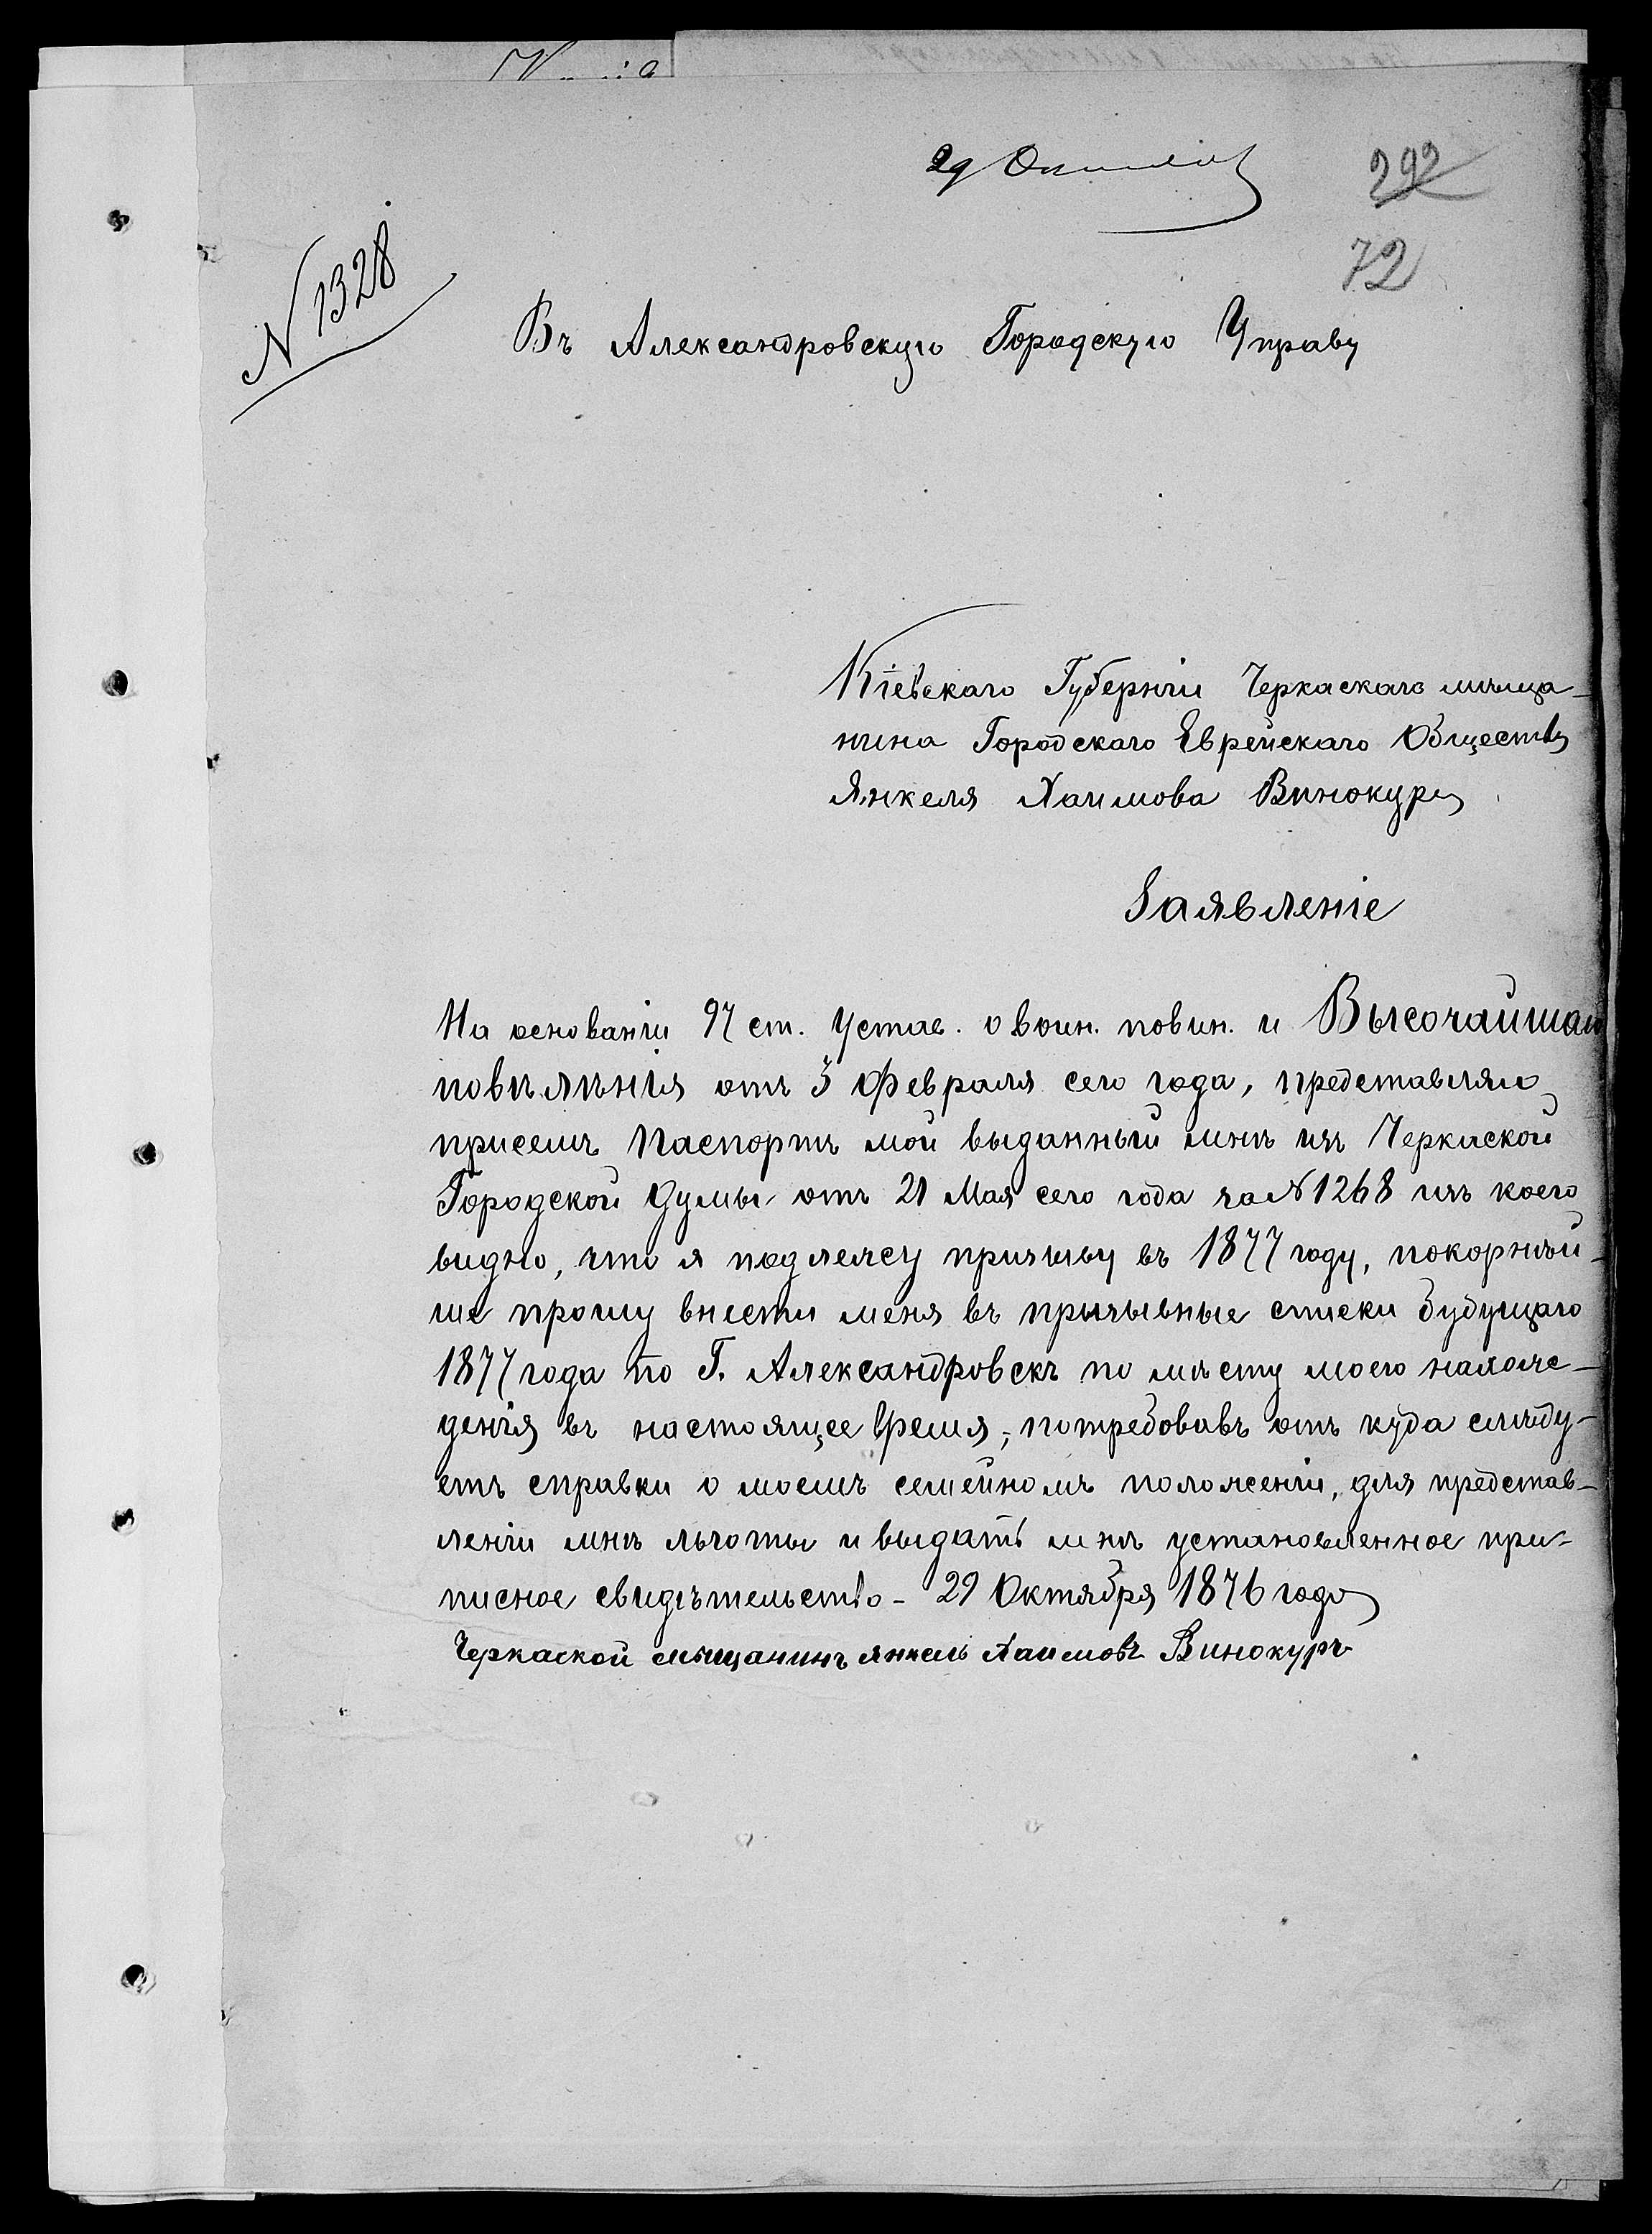 29 Октября
292
72
N 1328
Въ Александровскую Городскую Управу
Кіевскаго Губерніи Черкаскаго мѣща-
нина Городскаго Еврейскаго Общества
Янкеля Хаимова Винокура
Заявленіе
На основаніи 97 ст. Устав. о воин. повин. и Высочайшаго
повѣлѣнія отъ 3 Февраля сего года, представляю
присемъ Паспортъ мой выданный мнѣ изъ Черкаской
Городской Думы отъ 21 Мая сего года за N 1268 изъ коего
видно, что я подлежу призыву въ 1877 году, покорнѣй-
ше прошу внести меня въ призывные списки будущаго
1877 года по Г. Александровскъ по мѣсту моего нахож-
денія въ настоящее время, потребовавъ отъ куда слѣду-
етъ справки о моемъ семейномъ положеніи, для представ-
леніи мнѣ льготы и выдать мнѣ установленное при-
писное свидѣтельство - 29 Октября 1876 года
Черкаской мѣщанинъ Янкель Хаимовъ Винокуръ